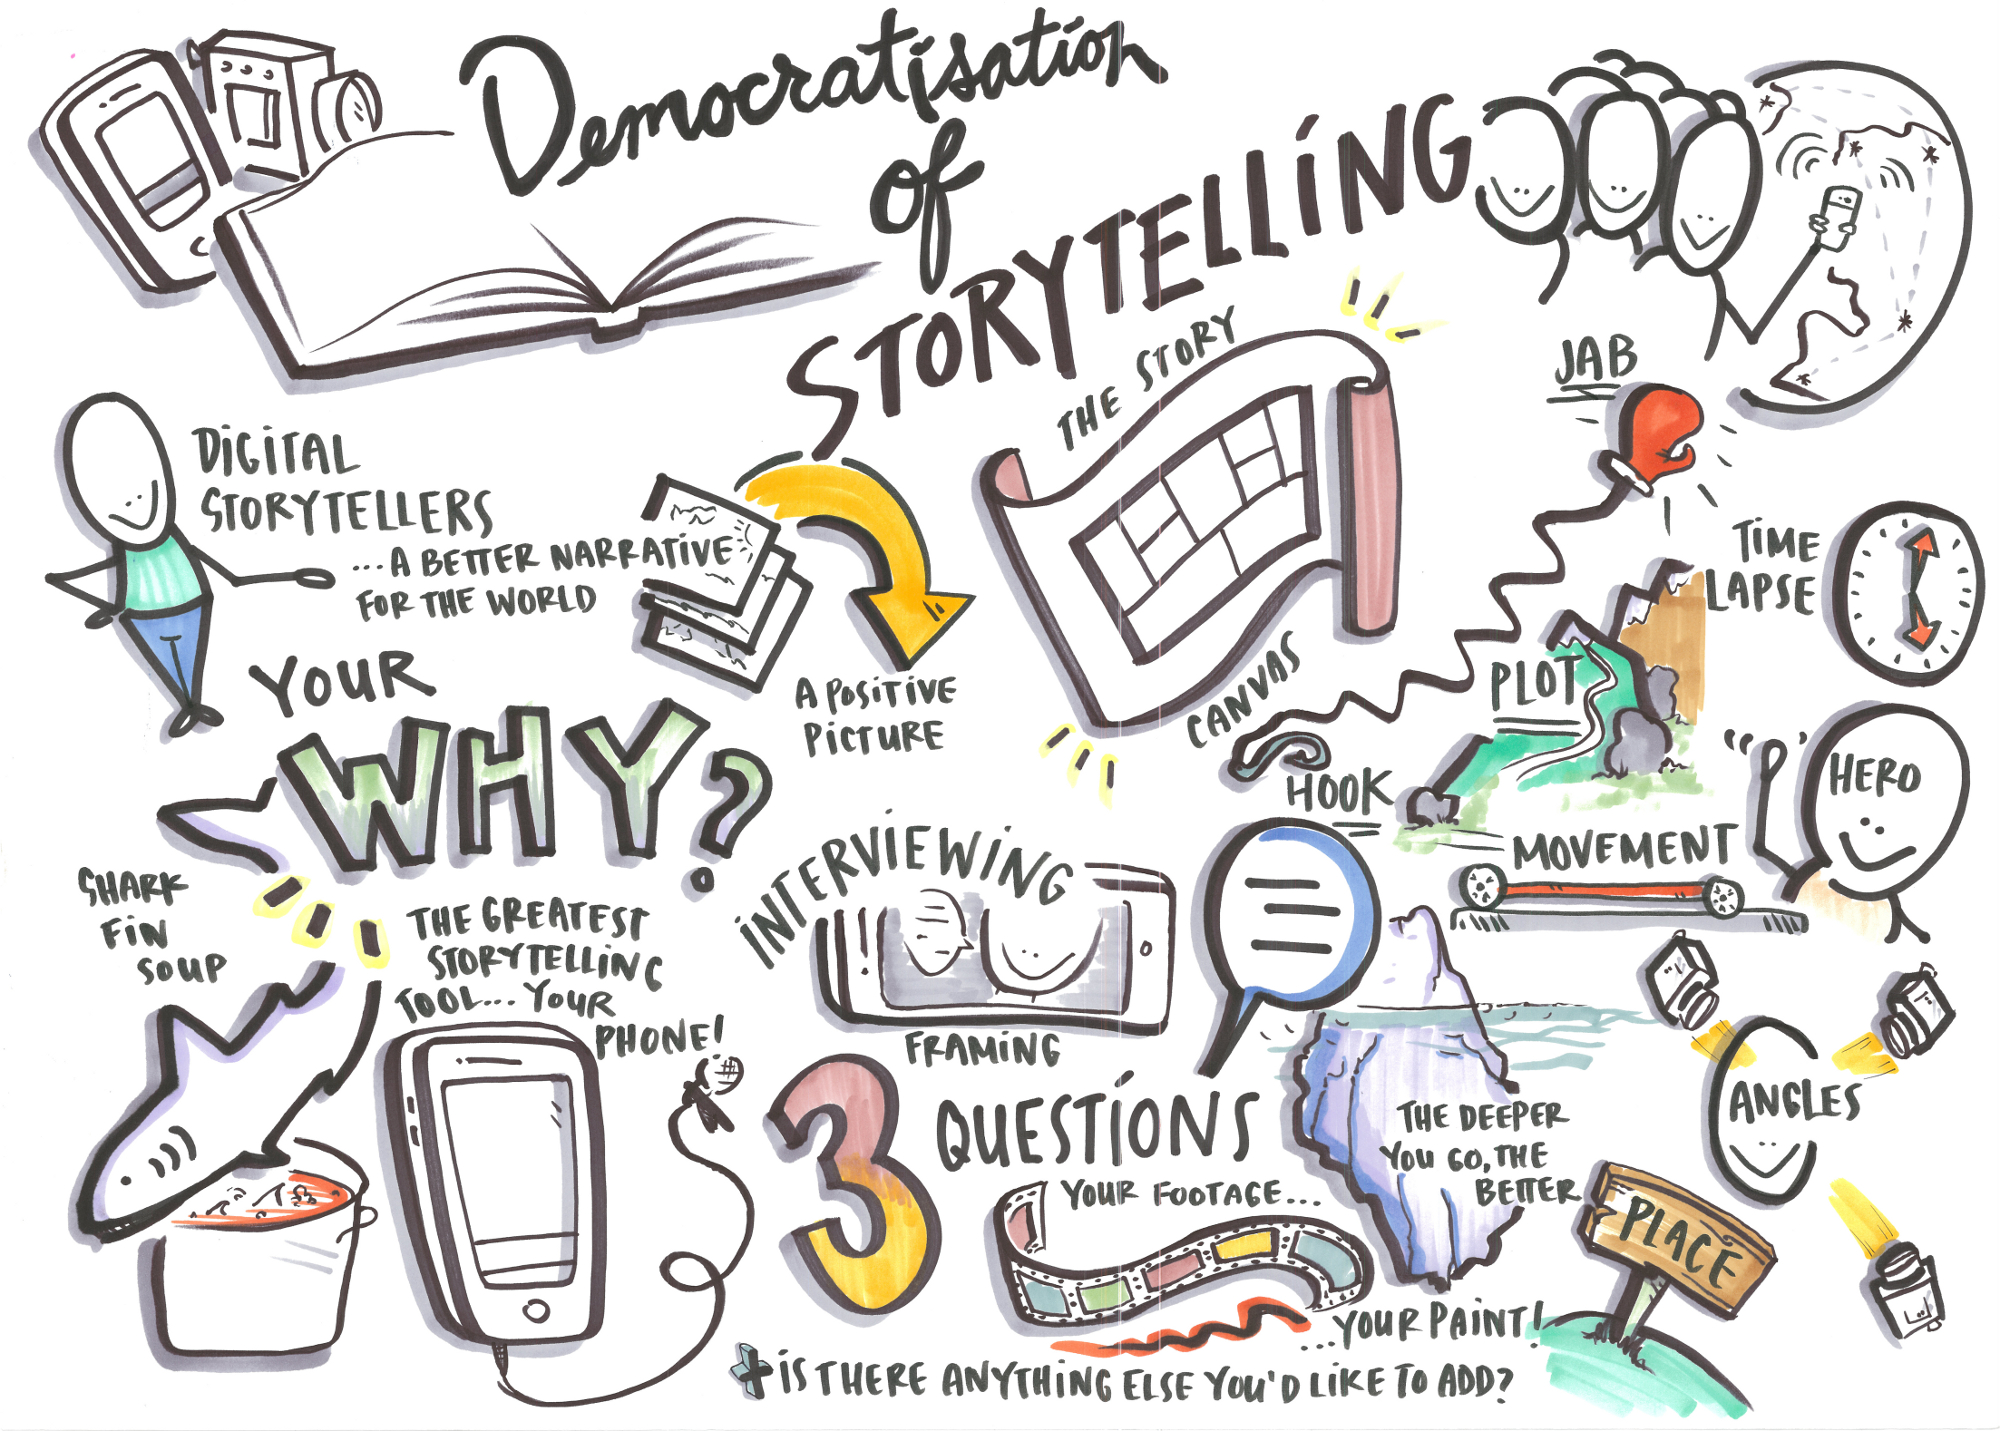 Democratisation
of
STORYTELLING
DIGITAL
STORYTELLERS
...A BETTER NARRATIVE
FOR THE WORLD
A POSITIVE
PICTURE
THE STORY
CANVAS
JAB
HOOK
PLOT
TIME
LAPSE
"P" HERO
MOVEMENT
YOUR
WHY?
SHARK
FIN
SOUP
THE GREATEST
STORYTELLING
TOOL... YOUR
PHONE!
INTERVIEWING
FRAMING
3 QUESTIONS
THE DEEPER
YOU GO, THE
BETTER
ANGLES
PLACE
YOUR FOOTAGE...
...YOUR PAINT!
+ IS THERE ANYTHING ELSE YOU'D LIKE TO ADD?